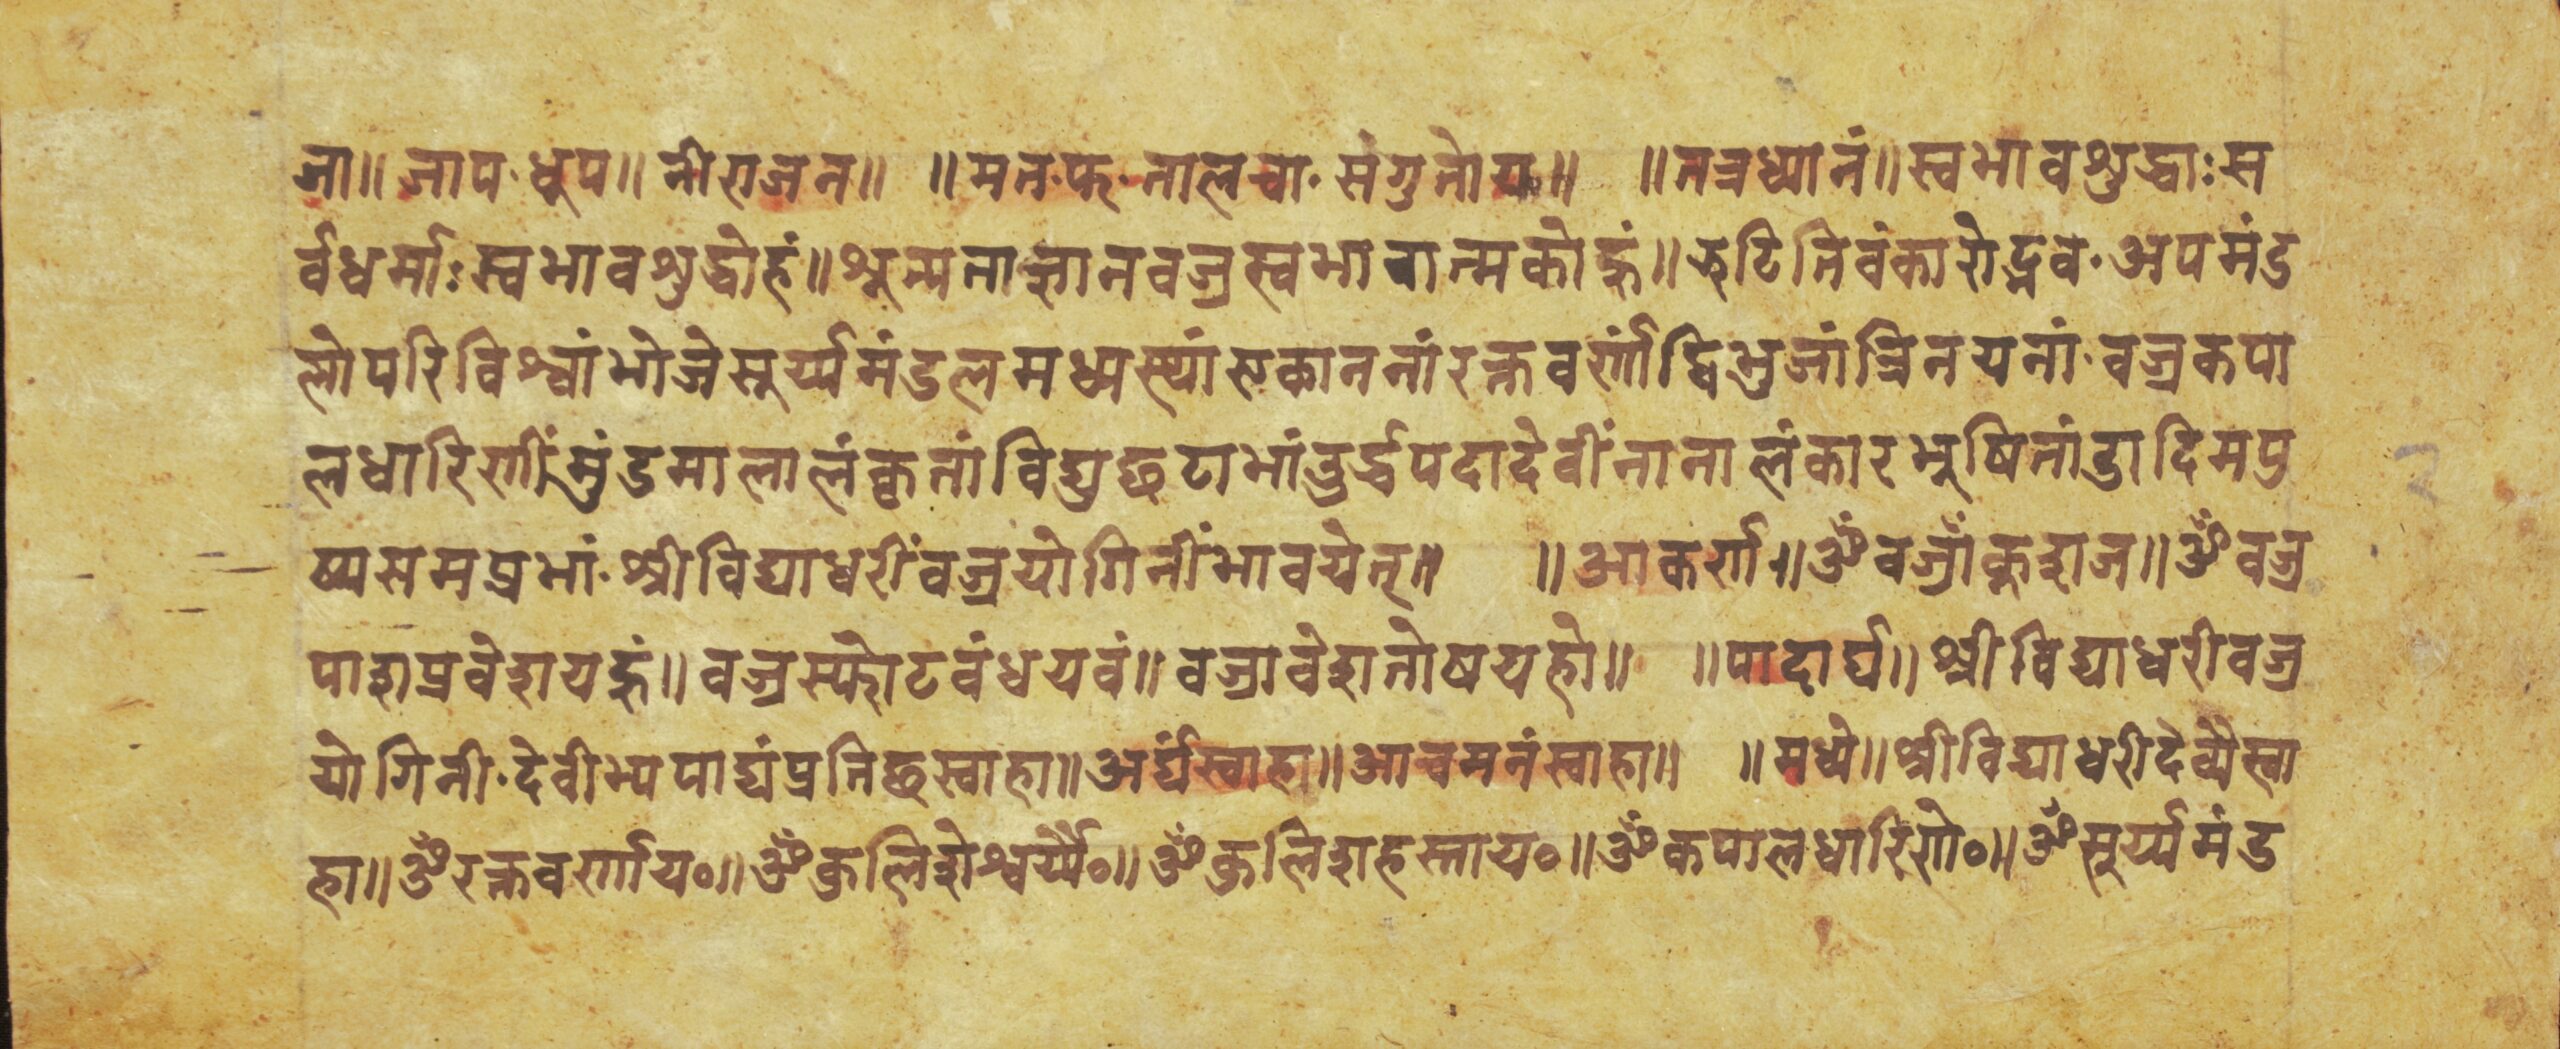 जा॥ जाप· धूप॥ नीराजन॥ ॥मत·फ·तालचा·संगुतोय॥ ॥तत्रध्यानं॥स्वभावशुद्धाःस
र्वधर्माःस्वभावशुद्धोहं॥शून्यताज्ञानवज्रस्वभावात्मकोहं॥झटितिवंकारोद्भव·अपमंड
लोपरिविश्वांभोजेसूर्य्यमंडलमध्यस्थांएकाननांरक्तवर्णांद्विभुजांत्रिनयनां·वज्रकपा
लधारिणींमुंडमालालंकृतांविद्युछटाभांउर्द्धपदादेवींनानालंकारभूषितांडादिमपु
ष्पसमप्रभां·श्रीविद्याधरींवज्रयोगिनींभावयेत्॥ ॥आकर्ण॥ॐवज्रांकुशज॥ॐवज्र
पाशप्रवेशयहूं॥वज्रस्फोटवंधयवं॥वज्रावेशतोषयहो॥ ॥पादार्घ॥श्रीविद्याधरीवज्र
योगिनी·देवीभ्यपाद्यंप्रतिछस्वाहा॥अर्घंस्वाहा॥आचमनंस्वाहा॥ ॥मध्ये॥श्रीविद्याधरीदेव्यैस्वा
हा॥ॐरक्तवर्णाय॰॥ॐकुलिशेश्वर्य्यै॰॥ॐकुलिशहस्ताय॰॥ॐकपालधारिणे॰॥ॐसूर्य्यमंड